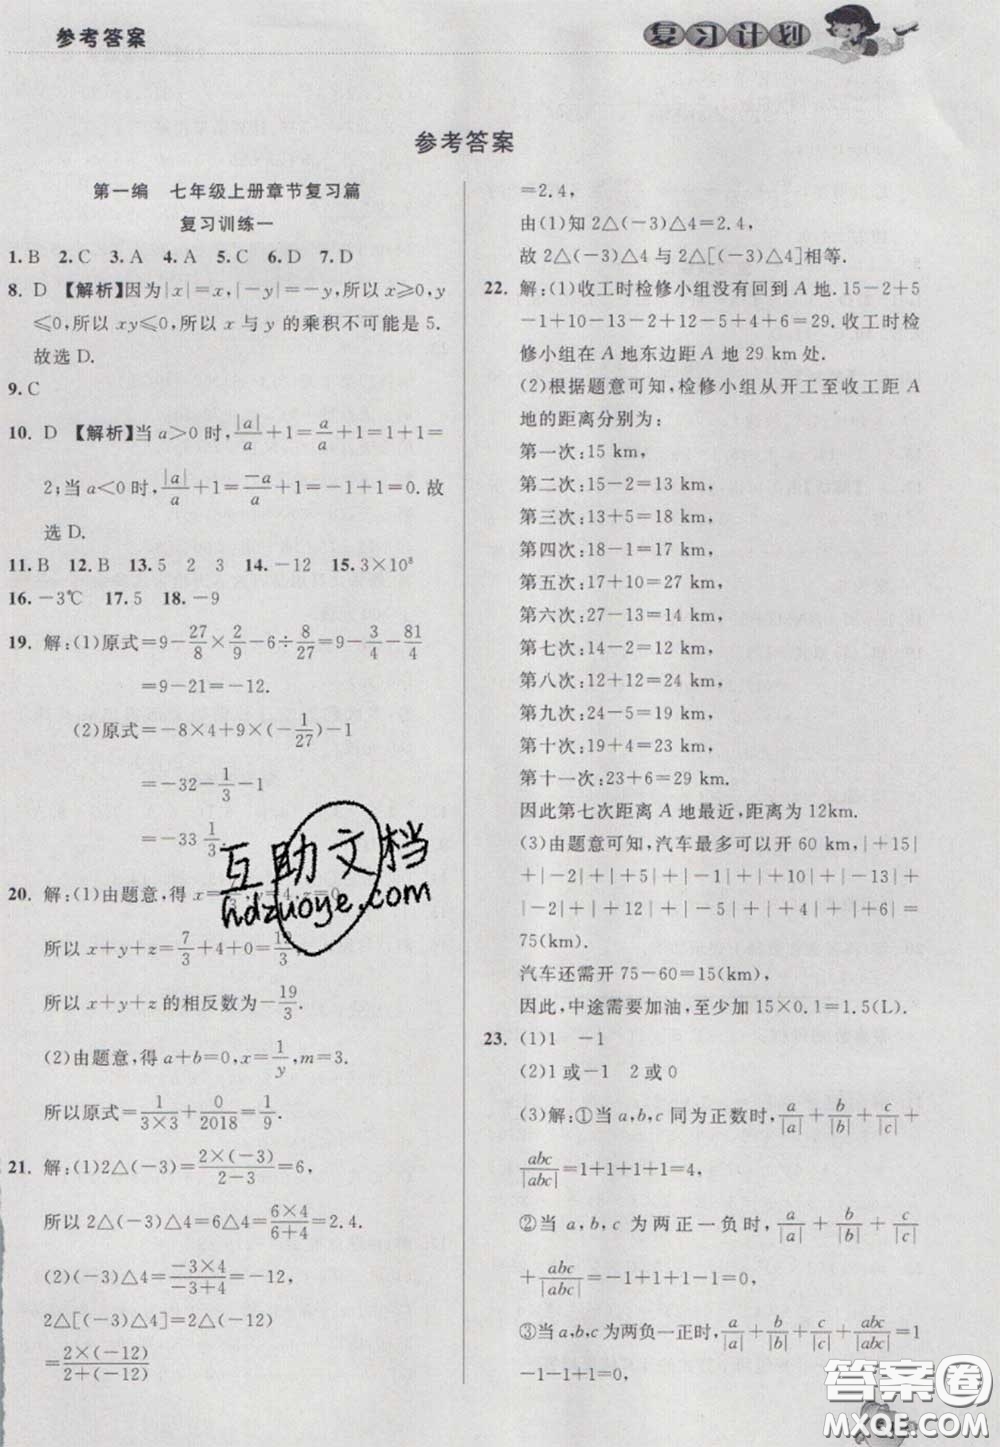 参考答案
复习计划
参考答案
第一编 七年级上册章节复习篇
复习训练一
1.B 2.C 3.A 4.A 5.C 6.D 7.D
8. D 【解析】因为|x|=x,|-y|=-y,所以x≥0,y
≤0,所以xy≤0,所以x与y的乘积不可能是5.
故选D.
9.C
10. D 【解析】当a>0时,|a|/a+1=a/a+1=1+1=
2;当a<0时,|a|/a+1=-a/a+1=-1+1=0.故
选D.
11.B 12.B 13.5 2 3 14.-12 15.3×10⁸
16.-3℃ 17.5 18.-9
19. 解:(1)原式=9-27/8×2/9-6÷8/27=9-3/4-81/4
=9-21=-12.
(2)原式=-8×4+9×(-1/27)-1
=-32-1/3-1
=-33 1/3.
20. 解:(1)由题意,得x=7/3,y=4,z=0
所以x+y+z=7/3+4+0=19/3
所以x+y+z的相反数为-19/3.
(2)由题意,得a+b=0,x=1/y,m=3.
所以原式=1/(3×3)+0/2018=1/9.
21. 解:(1)2△(-3)=2×(-3)/(2-3)=6,
所以2△(-3)△4=6△4=6×4/(6+4)=2.4.
(2)(-3)△4=-3×4/(-3+4)=-12,
2△[(-3)△4]=2△(-12)
=2×(-12)/(2+(-12))
=2.4,
由(1)知2△(-3)△4=2.4,
故2△(-3)△4与2△[(-3)△4]相等.
22. 解:(1)收工时检修小组没有回到A地.15-2+5
-1+10-13-2+12-5+4+6=29.收工时检
修小组在A地东边距A地29 km处.
(2)根据题意可知,检修小组从开工至收工距A
地的距离分别为:
第一次:15 km,
第二次:15-2=13 km,
第三次:13+5=18 km,
第四次:18-1=17 km,
第五次:17+10=27 km,
第六次:27-13=14 km,
第七次:14-2=12 km,
第八次:12+12=24 km,
第九次:24-5=19 km,
第十次:19+4=23 km,
第十一次:23+6=29 km.
因此第七次距离A地最近,距离为12km.
(3)由题意可知,汽车最多可以开60 km,|+15|
+|-2|+|+5|+|-1|+|+10|+|-13|+
|-2|+|+12|+|-5|+|+4|+|+6|=
75(km).
汽车还需开75-60=15(km),
因此,中途需要加油,至少加15×0.1=1.5(L).
23. (1)1 -1
(2)1或-1 2或0
(3)解:①当a,b,c同为正数时,a/|a|+b/|b|+c/|c|+
abc/|abc|=1+1+1+1=4,
②当a,b,c为两正一负时,a/|a|+b/|b|+c/|c|
+abc/|abc|=-1+1+1-1=0,
③当a,b,c为两负一正时,a/|a|+b/|b|+c/|c|+abc/|abc|=1
-1-1+1=0,
互助文档
hdzuoye.com
答案圈
MXQE.COM